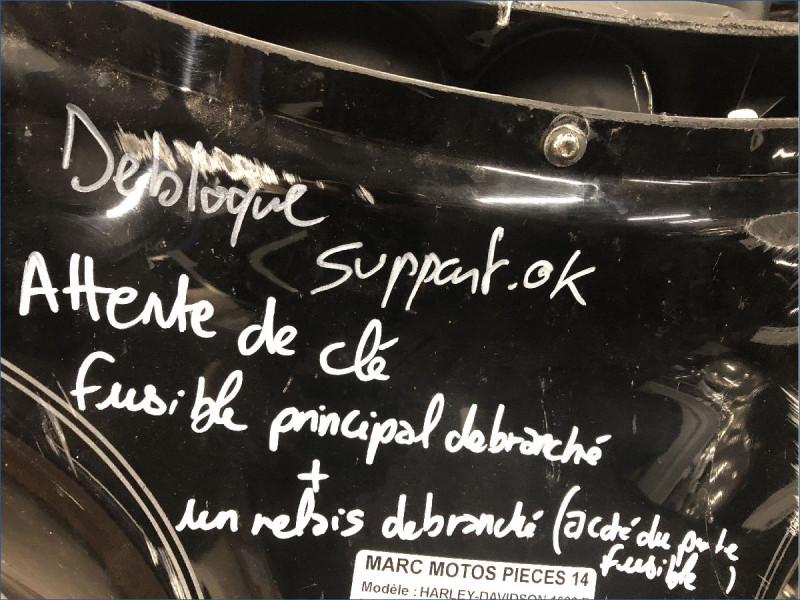 Debloque
support.ok
Attente de clé
fusible principal debranché
+
un relais debranché (a coté du porte
fusible)
MARC MOTOS PIECES 14
Modèle : HARLEY-DAVIDSON